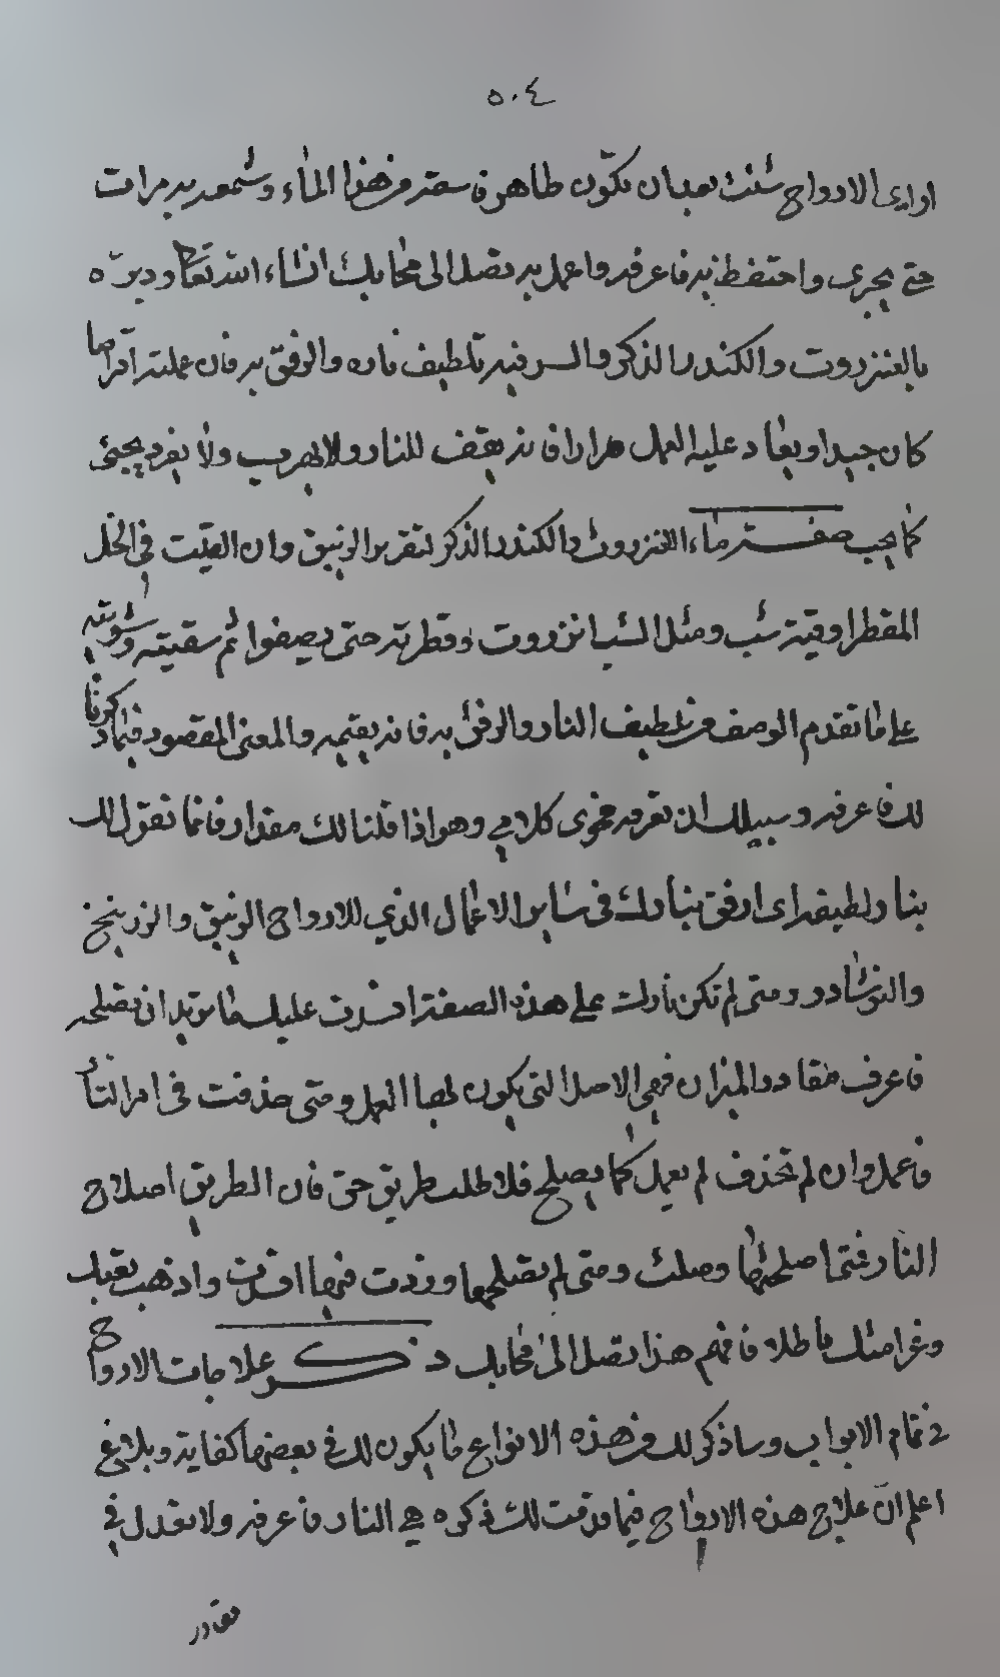 ٥٠٤
او اي الارواح شئت بعد ان تكون طاهرة فاسقه من هذا الماء وشمعه به مرات
حتى يجرى واحتفظ به فاعرفه واعمل به تصل الى محابك انشاء الله تعالى ودبره
بالعنزروت والكندر الذكر والسر فيه تلطيف ناره والرفق به فان عملته اقراصا
كان جيدا ويعاد عليه العمل مرارا فانه يقف للنار ولا يهرب ولا يفر ويجئ
كما يجب صفة ماء العنزروت والكندر الذكر لتقرير الزيبق وان القيت في الخل
المقطر اوقية شب ومثل الشب انزروت وقطرته حتى يصفوا ثم سقيته وشويته
على ما تقدم الوصف من تلطيف النار والرفق به فانه يقيمه والمعنى المقصود فيما ذكرنا
لك فاعرفه وسبيلك ان تعرف فحوى كلامي وهو اذا قلنا لك مقدار فانما نقول لك
بنار لطيفة اى ارفق بنارك في ساير الاعمال الذي للارواح الزيبق والزرنيخ
والنوشادر ومتى لم تكن نارك على هذه الصفة افسدت عليك ما تريد ان تصلحه
فاعرف مقادر الميزان فهي الاصل التى يكون لها العمل ومتى حذقت في امر النار
فاعمل وان لم تحذف لم يعمل كما يصلح فلا تطلب طريق حق فان الطريق اصلاح
النار فمتى اصلحتها وصلت ومتى لم تصلحها وزدت فيها افسدت واذهب تعبك
وغرامتك باطلا فافهم هذا تصل الى محابك ذكر علاجات الارواح
في تمام الابواب وساذكر لك من هذه الانواع ما يكون لك في بعضها كفاية وبلاغ
اعلم ان علاج هذه الارواح فيما قدمت لك ذكره هي النار فاعرفه ولا تعدل في
مقادر